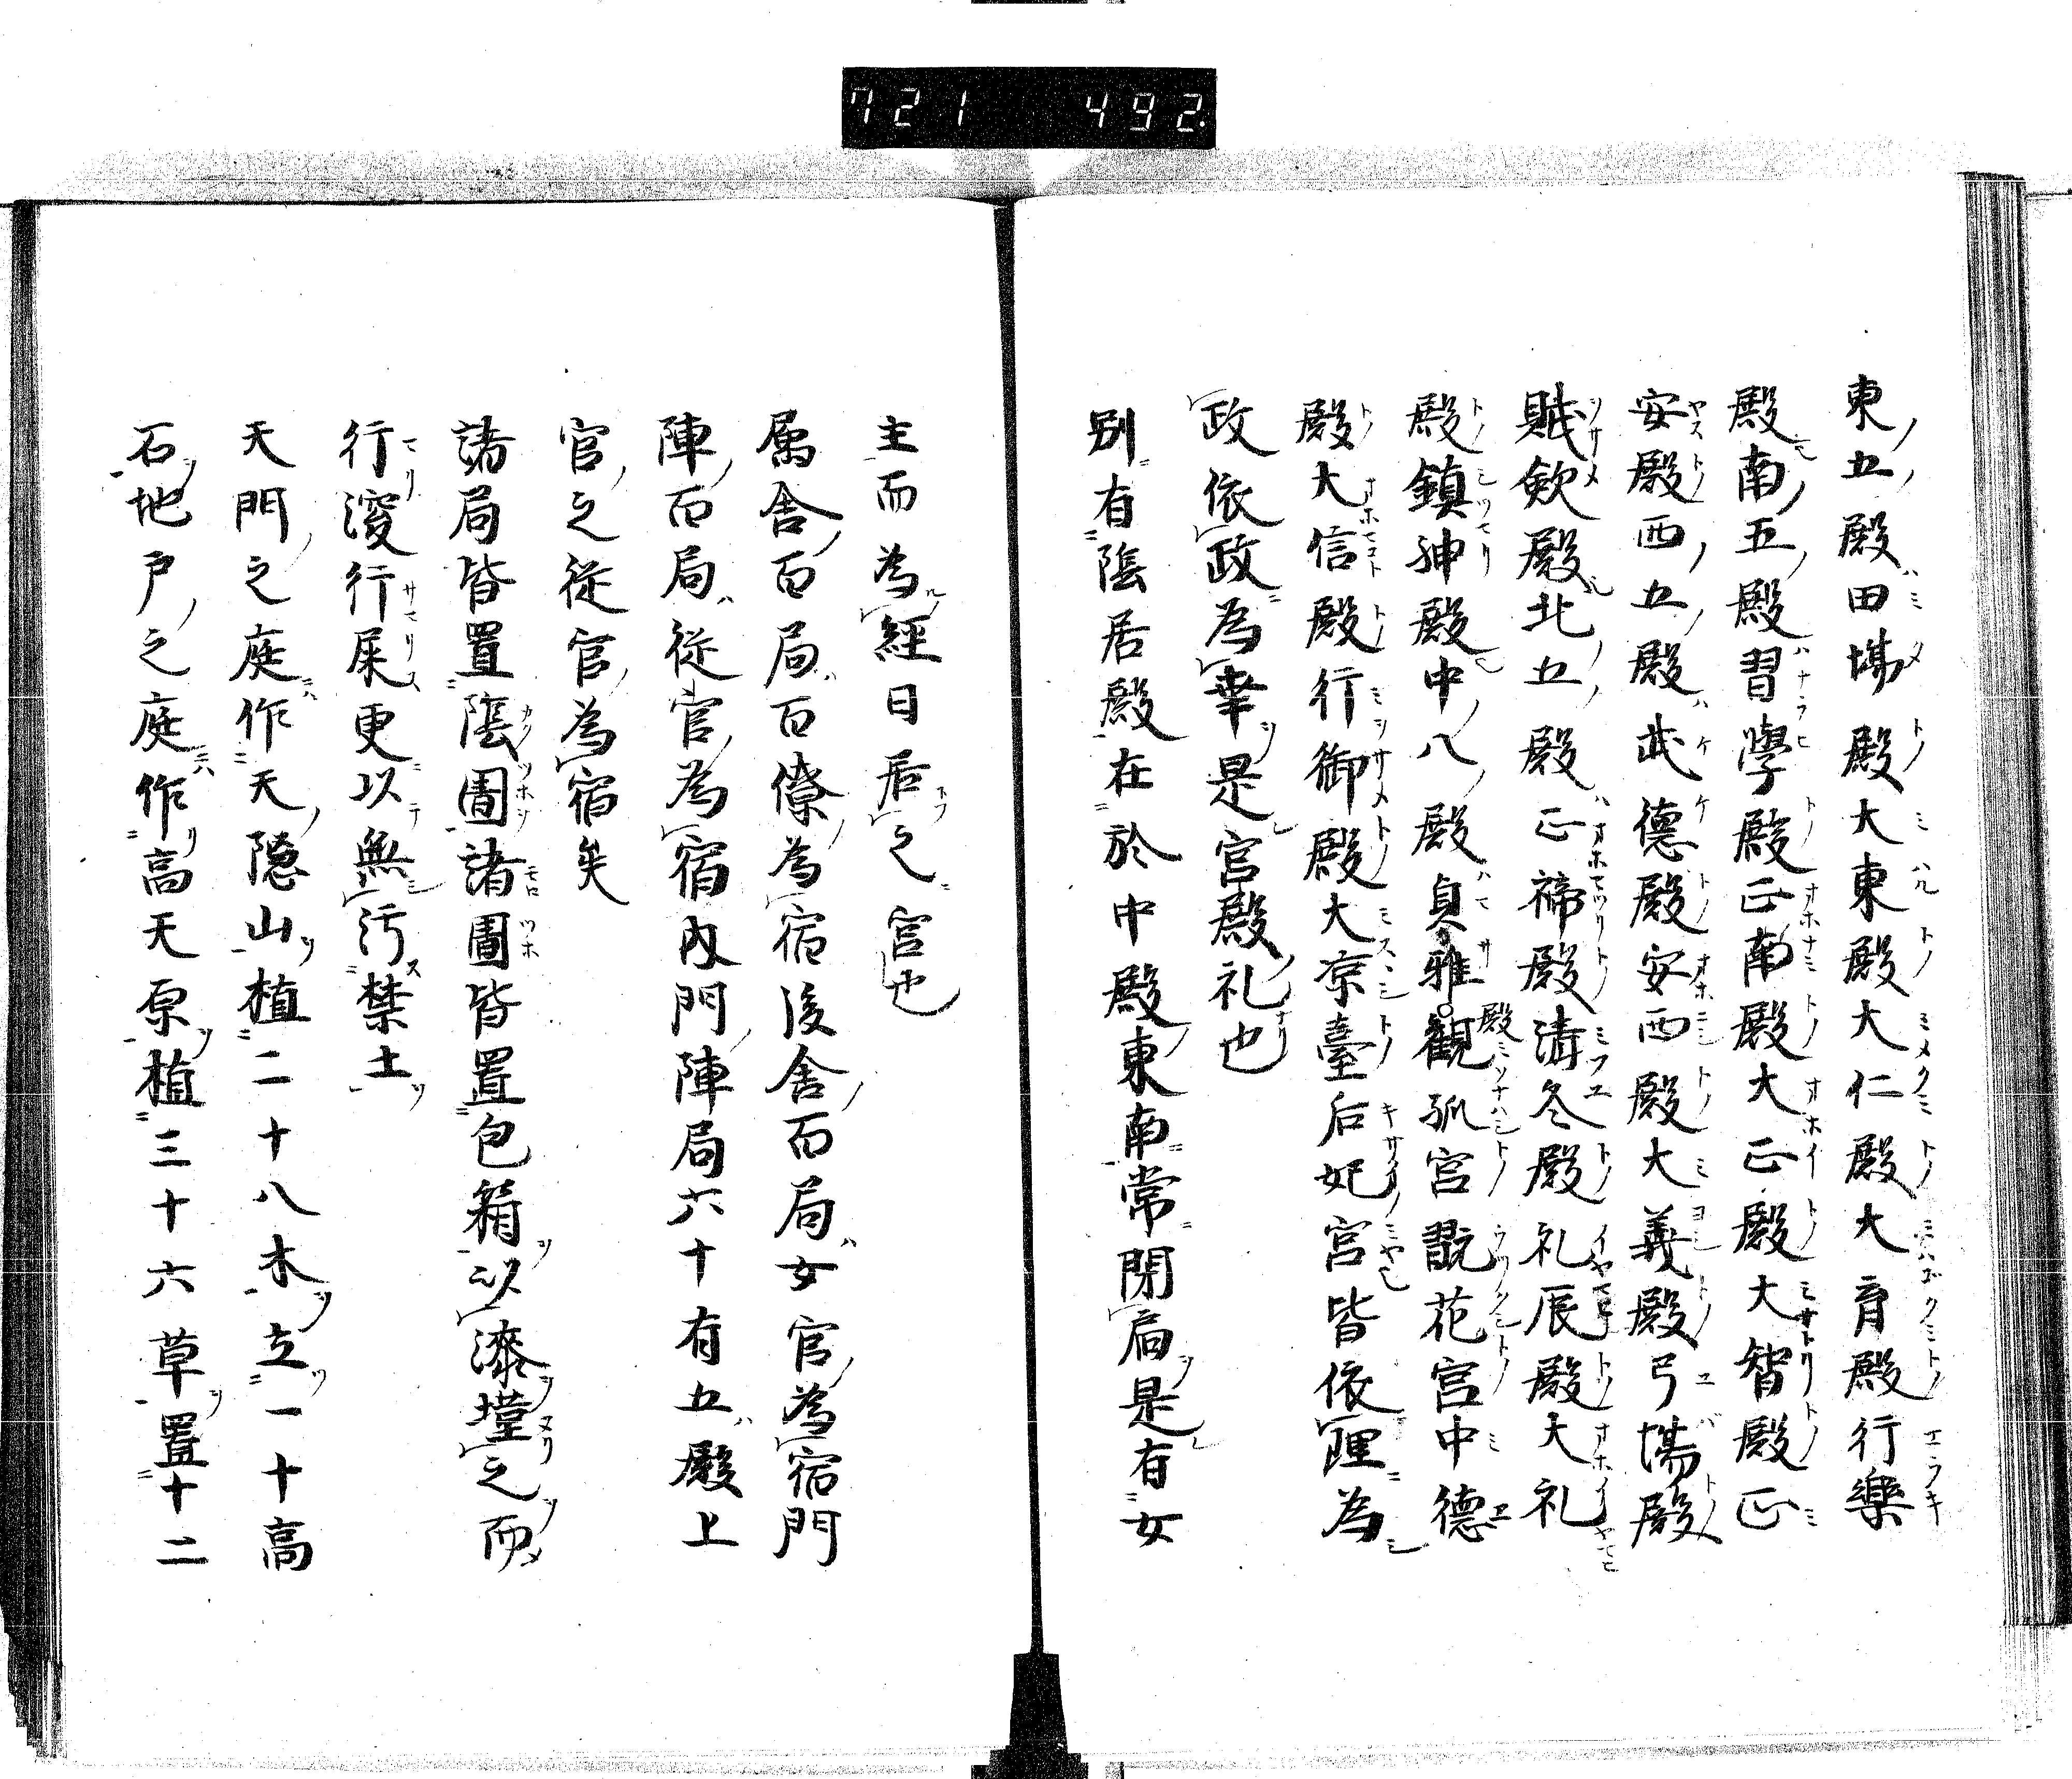 721 492.
東五殿田場殿大東殿大仁殿大育殿行樂
殿南五殿習學殿正南殿大正殿大智殿正
安殿西五殿武德殿安西殿大義殿弓場殿
賦斂殿北五殿正禘殿清冬殿礼辰殿大礼
殿鎮神殿中八殿貞雅殿觀孤宮翫花宮中德
殿大信殿行御殿大凉臺后妃宮皆依理為
政依政為幸是宮殿礼也
別有陰居殿在於中殿東南常閉扃是有女
主而為經日居之宮也
属舍百局百僚為宿後舍百局女官為宿門
陣百局從官為宿内門陣局六十有五殿上
官之從官為宿矣
諸局皆置陰圊諸圊皆置包箱以漆墐之而
行溲行屎更以無污禁土
天門之庭作天隠山植二十八木立一十高
石地戸之庭作高天原植三十六草置十二